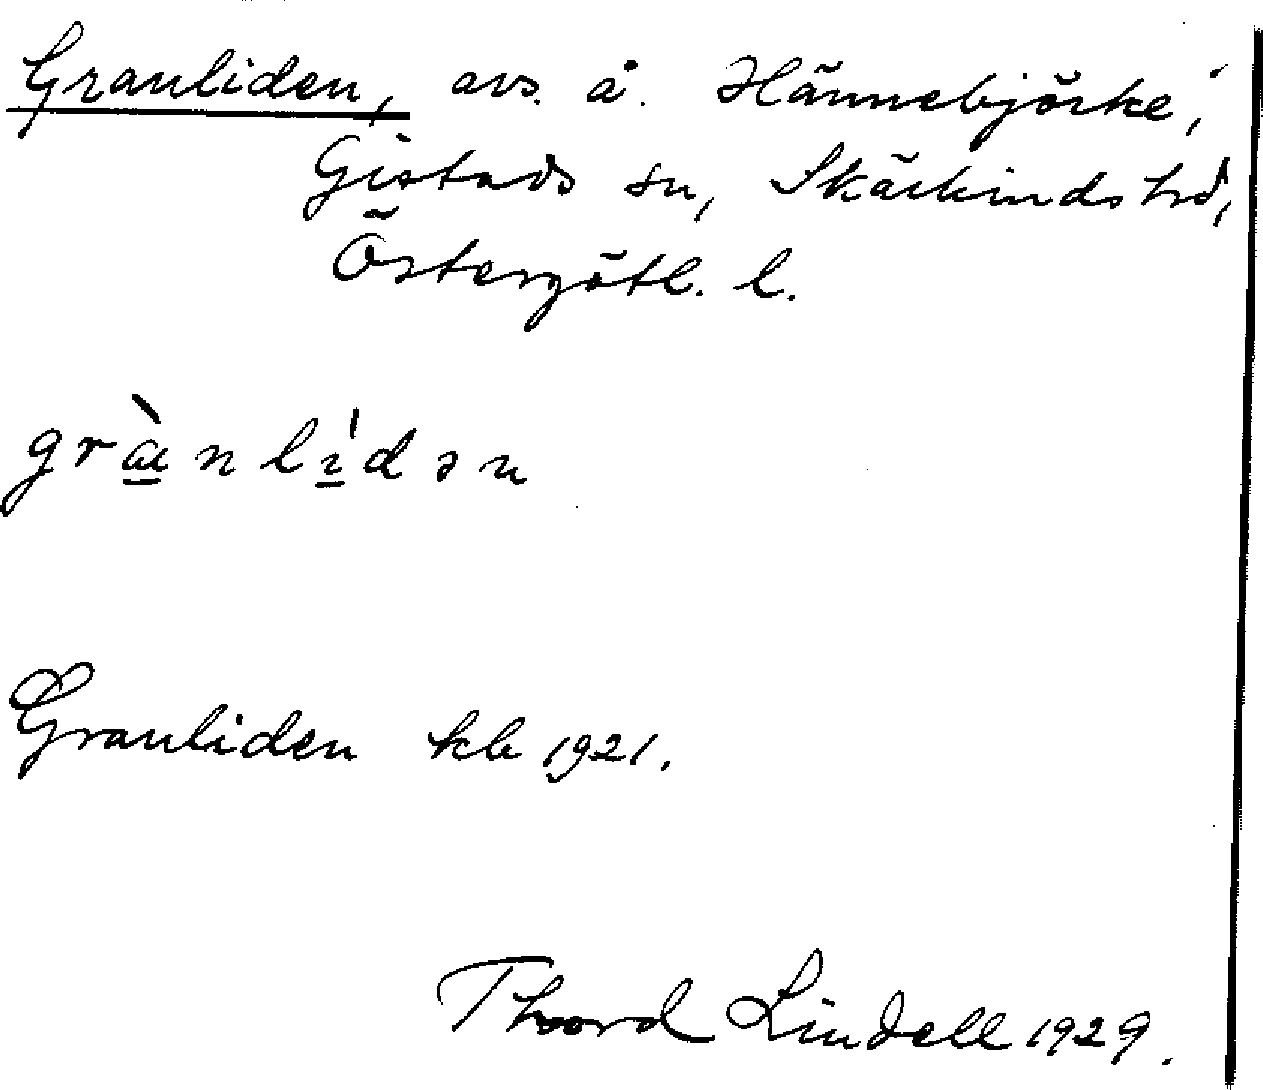 Granliden, avs. å. Hännebjörke,
Gistads sn, Skärkinds hd,
Östergötl. l.
grànlídən
Granliden kb 1921.
Thord Lindell 1929.